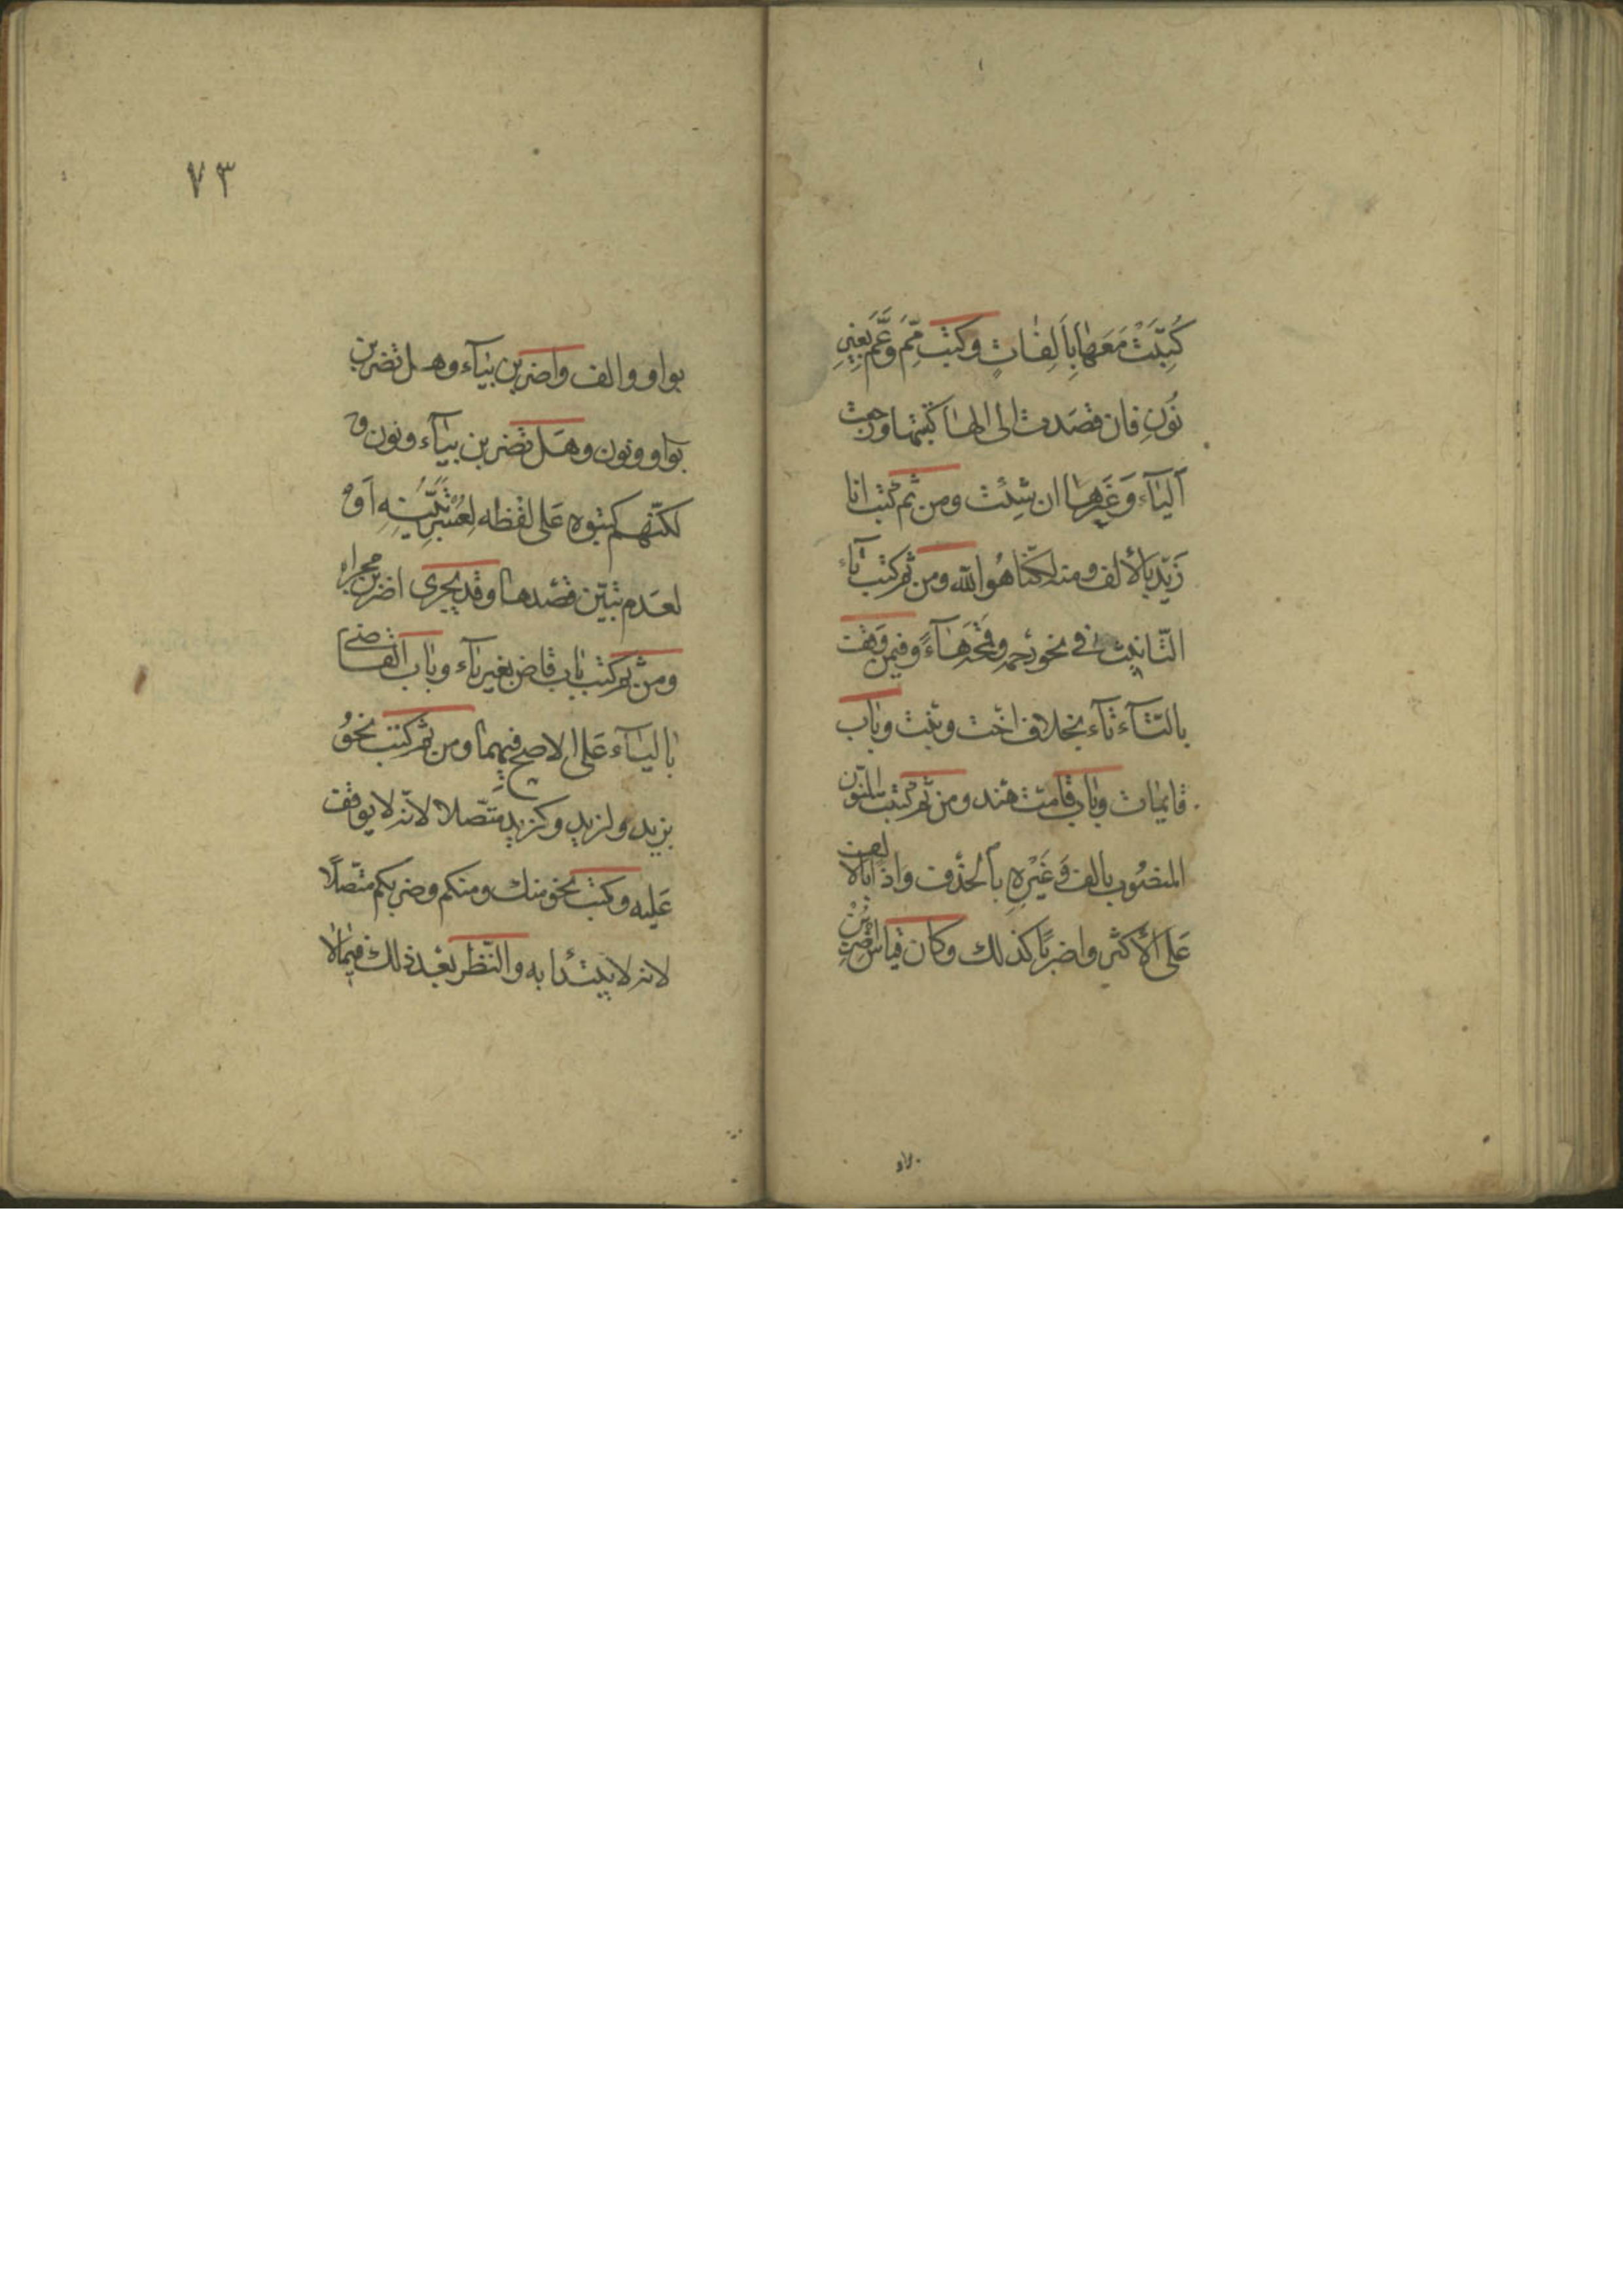 كُتِبَتْ مَعَهَا بِاَلِفَاتٍ وكتب مِّمَ وعَّمَ بَغيْرِ
نُونٍ فان قصدت الى الهاء كتبتها ورجعت
اليآء وَغَيرها ان شئت ومن ثم كتب انا
زَيْد بالألف ومنه لكنّا هُو الله ومن ثم كتب تآء
التّانيث في نحو رحمه وقمحه هَآءً وفيمن وقف
بالتّآء تآء بخلاف اخت وبنت وباب
قايمات وباب قامت هند ومن ثم كتب المنوّن
المنصُوب بالف وَغَيْرِهِ بالحذف واذًا بالالف
عَلى الأكثر واضربًا كذلك وكان قياس اضربُنْ
٧٣
بواو والف واضربن بيآء وهل تضربن
بواو ونون وهَل تضربن بيآء ونون و
لكنّهم كتبوه عَلى لفظه لعُسْرِ تَبَيُّنِهِ اَو
لعَدم تبيّن قصْدها وقد يجرى اضربن مجراه
ومن ثم كتب باب قاض بغير يآء وباب القاضي
باليآء عَلى الاصح فيهما ومن ثم كتب نحوُ
بزيد ولزيد وكزيد متّصلا لانّه لا يوقف
عَليه وكتب نحو منك ومنكم وضربكم متّصلًا
لانه لا يبتدأ به والنّظر بعْد ذلك فيما لا